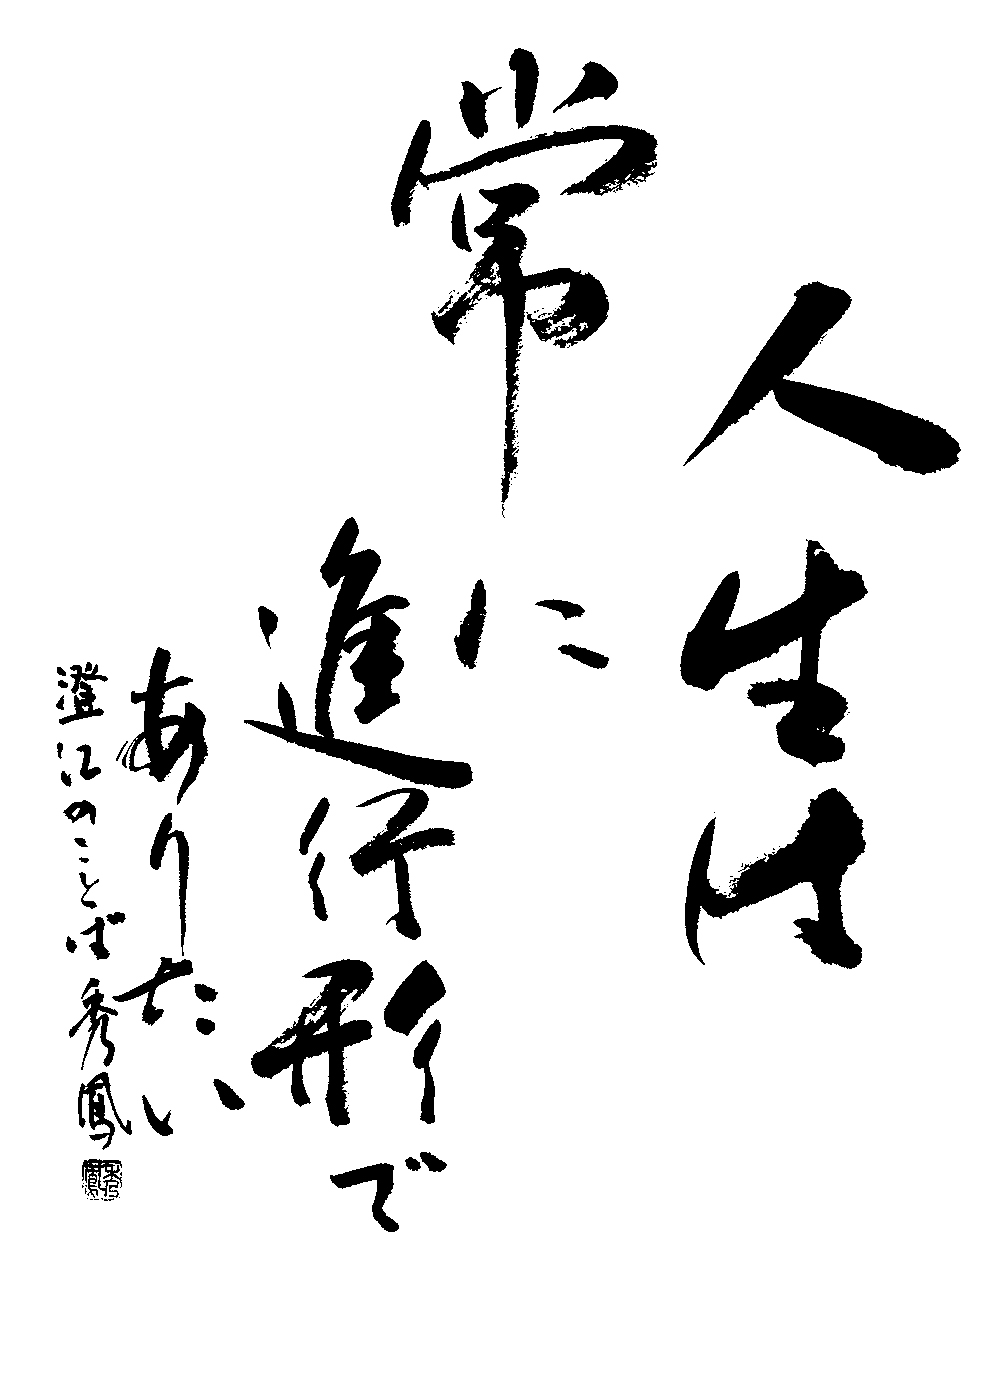 人生は
常に
進行形で
ありたい
澄江のことば 秀鳳
秀鳳